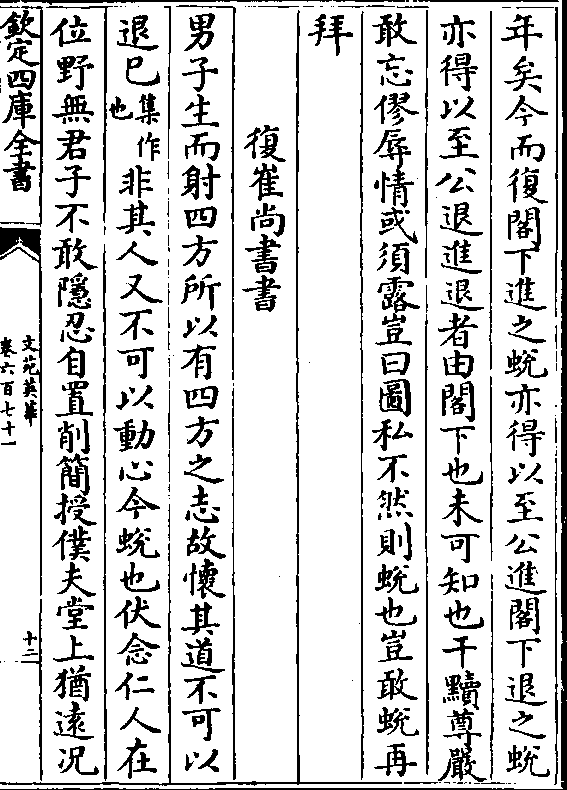 年矣今而復閣下進之蛻亦得以至公進閣下退之蛻
亦得以至公退進退者由閣下也未可知也干黷尊嚴
敢忘僇辱情或須露豈曰圖私不然則蛻也豈敢蛻再
拜
復崔尚書書
男子生而射四方所以有四方之志故懷其道不可以
退已集作也非其人又不可以動心今蛻也伏念仁人在
位野無君子不敢隱忍自置削簡授僕夫堂上猶遠況
欽定四庫全書
文苑英華
卷六百七十一
十二